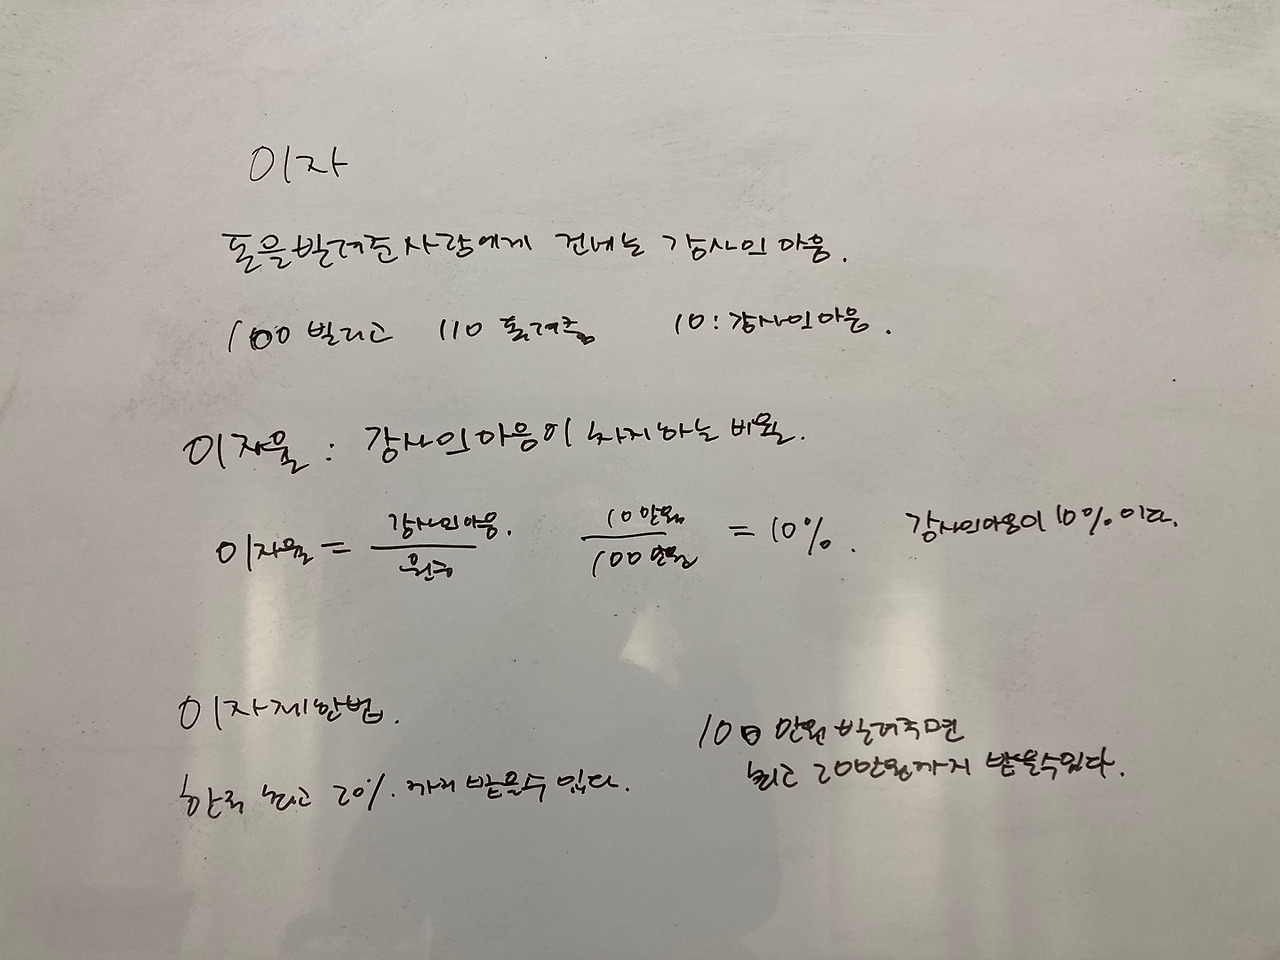 이자
돈을 빌려준 사람에게 건네는 감사의 마음.
100 빌리고 110 돌려줌 10 : 감사의 마음.
이자율 : 감사의 마음이 차지하는 비율.
이자율 = 감사의 마음. / 원금 10만원 / 100만원 = 10%. 감사의 마음이 10% 이다.
이자제한법.
한국 최고 20% 까지 받을 수 있다.
100만원 빌려주면
최고 200만원까지 받을 수 있다.